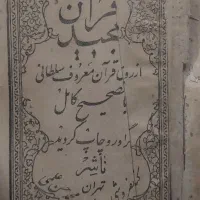 قرآن
مجید
از روی قرآن معروف سلطانی
با تصحیح کامل
گراور و چاپ گردید
ناشر
تهران